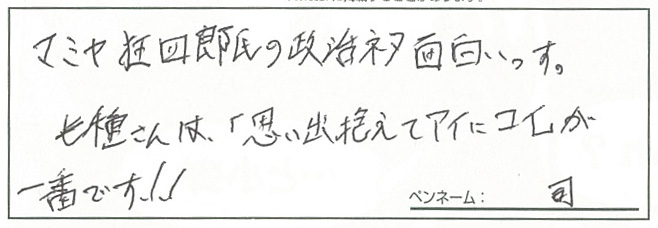 マミヤ狂四郎氏の政治ネタ面白いっす。
七種さんは、「思い出抱えてアイにコイ」が
一番です!!
ペンネーム： 司